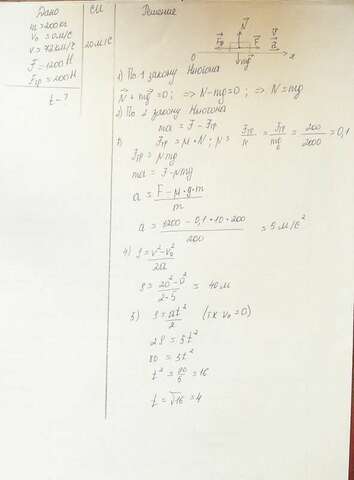 Дано
СИ
Решение
m=200кг
V₀=0м/с
V=72км/с
20м/с
F=1200Н
Fтр=200Н
t-?
N
Fтр
F
V
a
0
mg
x
1) По 1 закону Ньютона
N+mg=0; => N-mg=0; => N=mg
2) По 2 закону Ньютона
ma = F - Fтр
3) Fтр = μ•N; μ = Fтр/N = Fтр/mg = 200/2000 = 0,1
Fтр = μmg
ma = F-μmg
a = (F - μ•g•m)/m
a = (1200 - 0,1•10•200)/200 = 5 м/с²
4) S = (V²-V₀²)/2a
S = (20²-0²)/2•5 = 40м
5) S = at²/2 (т.к V₀=0)
2S = 5t²
80 = 5t²
t² = 80/5 = 16
t = √16 = 4